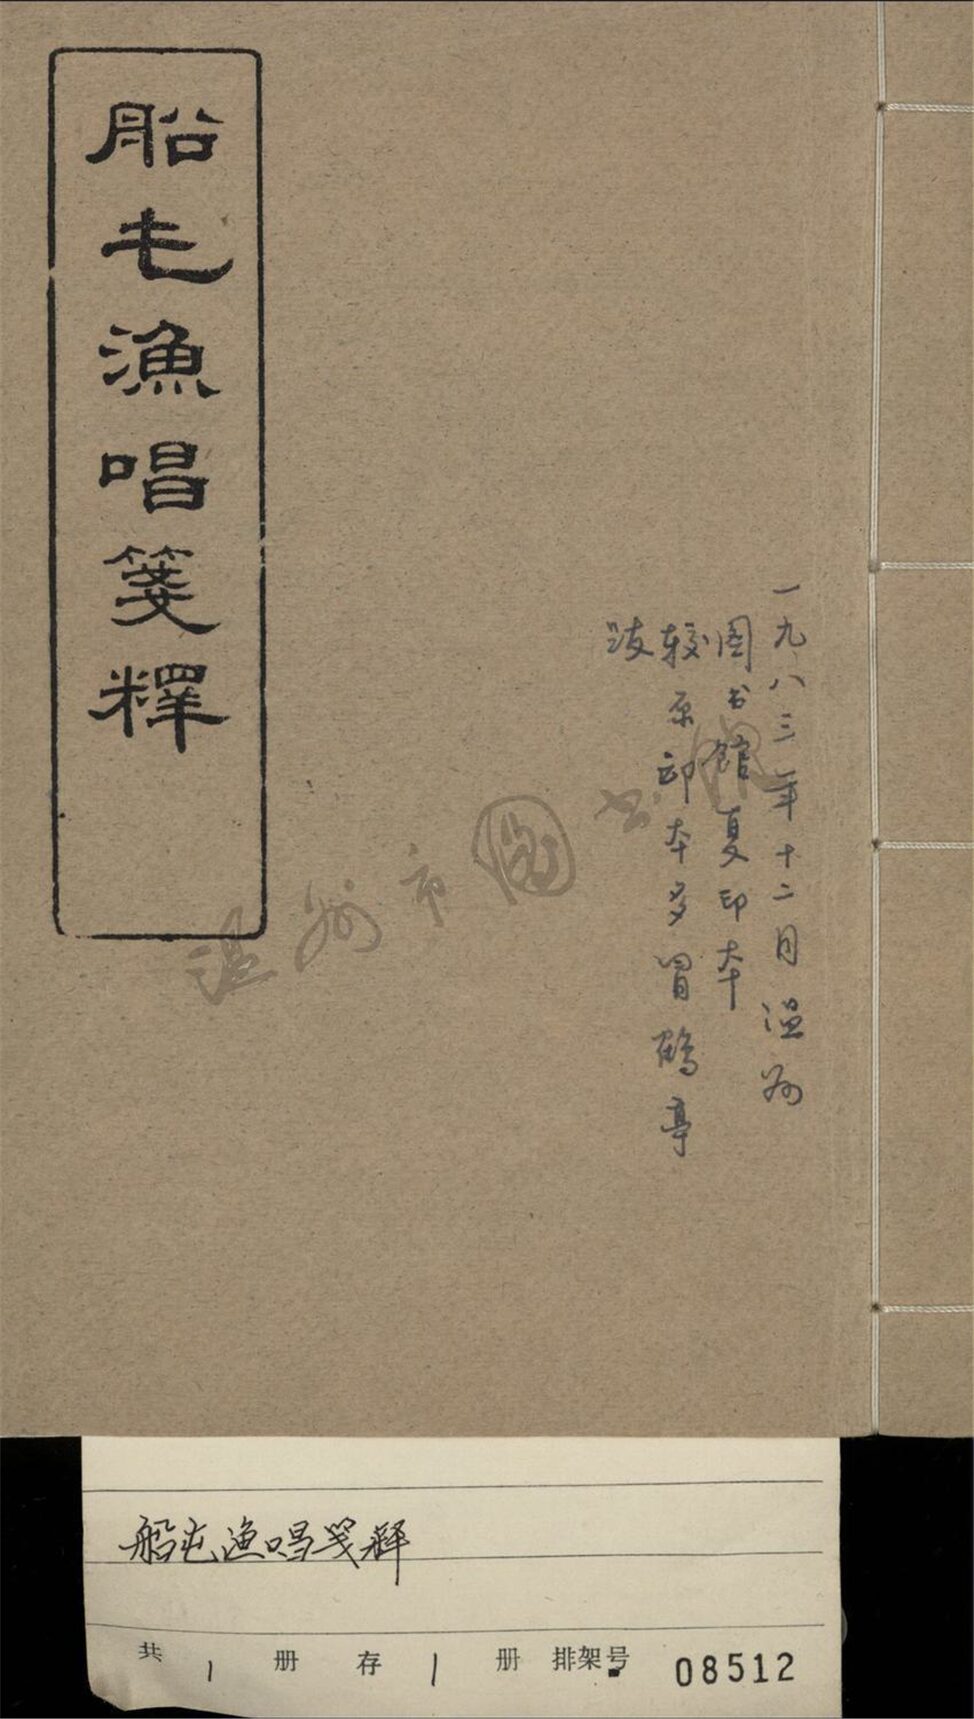 一九八三年十二月温州
图书馆复印本
较原印本多冒鹤亭
跋
船屯漁唱箋釋
温州市图书馆
船屯渔唱笺释
共 1 册 存 1 册 排架号 08512